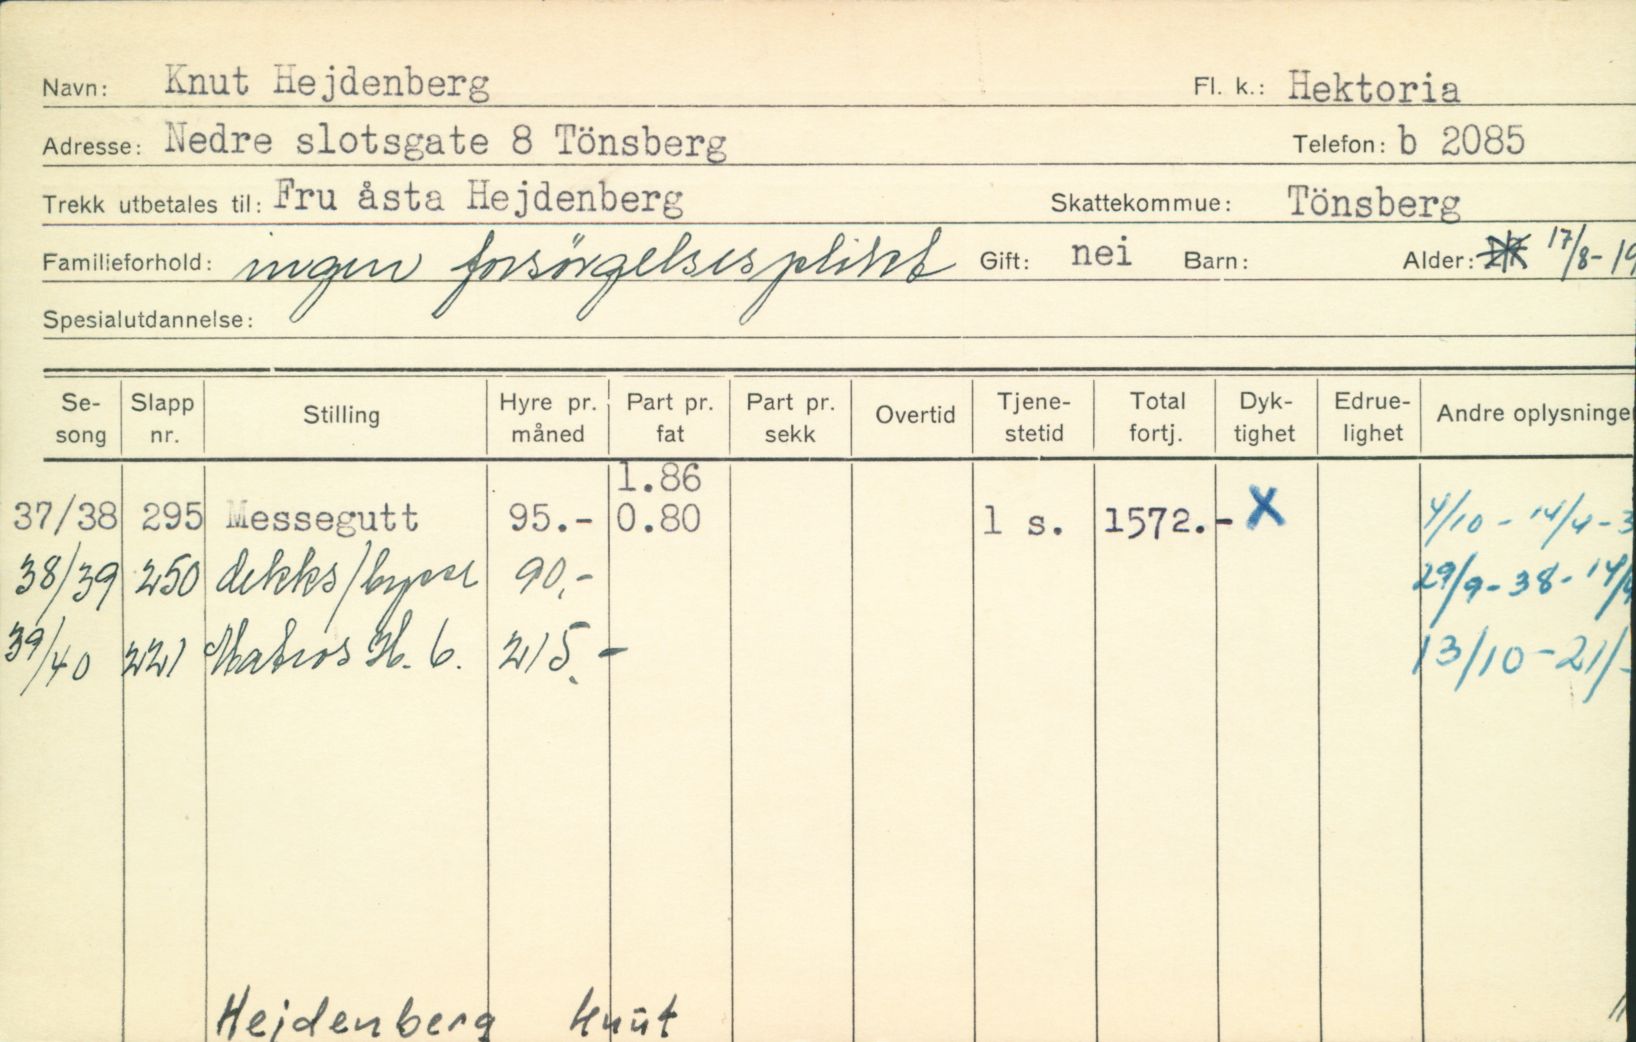 Navn: Knut Hejdenberg Fl. k.: Hektoria
Adresse: Nedre slotsgate 8 Tönsberg Telefon: b 2085
Trekk utbetales til: Fru åsta Hejdenberg Skattekommue: Tönsberg
Familieforhold: ingen forsörgelsesplikt Gift: nei Barn: Alder: 17/8-19
Spesialutdannelse:
Se-song Slapp nr. Stilling Hyre pr. måned Part pr. fat Part pr. sekk Overtid Tjene-stetid Total fortj. Dyk-tighet Edrue-lighet Andre oplysninge
1.86
37/38 295 Messegutt 95.- 0.80 1 s. 1572.- X 4/10 - 14/4 - 3
38/39 250 dekks/bysse 90,- 29/9-38-14/4
39/40 221 Matros H. b. 215.- 13/10-21/-
Hejdenberg Knut